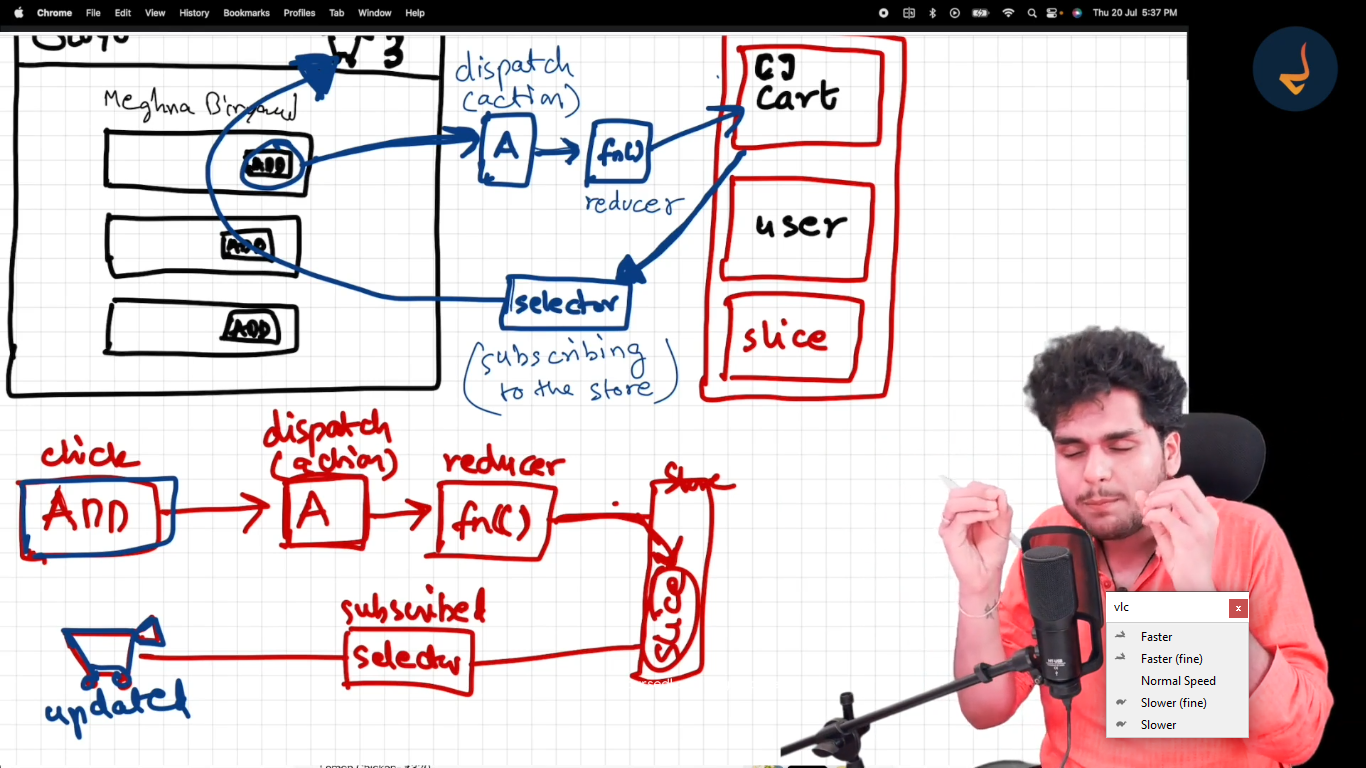 Chrome File Edit View History Bookmarks Profiles Tab Window Help Thu 20 Jul 5:37 PM
3
Meghna Biryani
ADD
ADD
ADD
dispatch
(action)
A
fn()
reducer
selector
(subscribing
to the store)
CJ
Cart
user
slice
click
ADD
dispatch
(action)
A
reducer
fn()
Store
slice
subscribed
selector
updated
vlc
x
Faster
Faster (fine)
Normal Speed
Slower (fine)
Slower